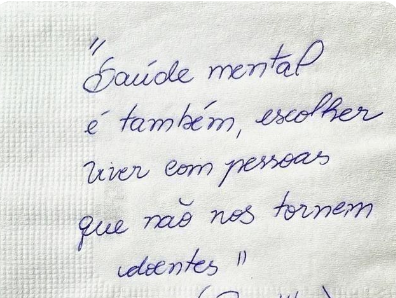 "Saúde mental
é também, escolher
viver com pessoas
que não nos tornem
doentes"